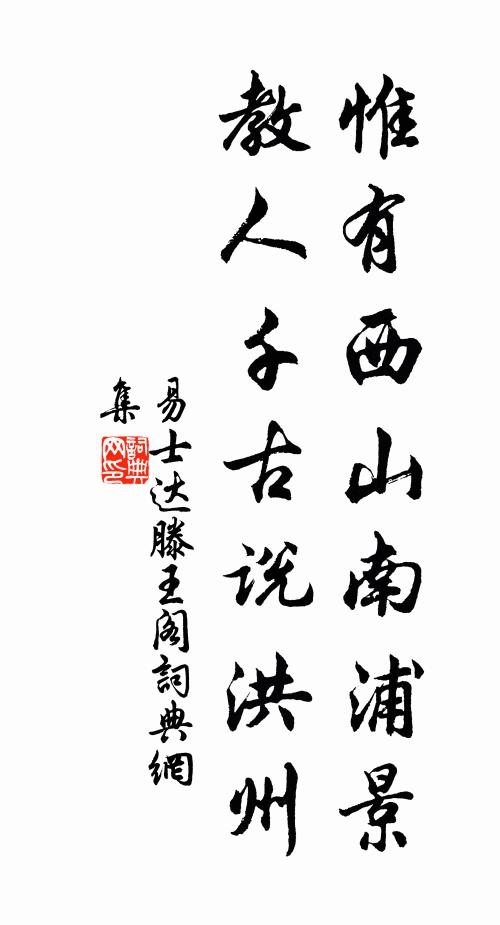 惟有西山南浦景
教人千古说洪州
易士达滕王阁詞典網
集
詞典
网印